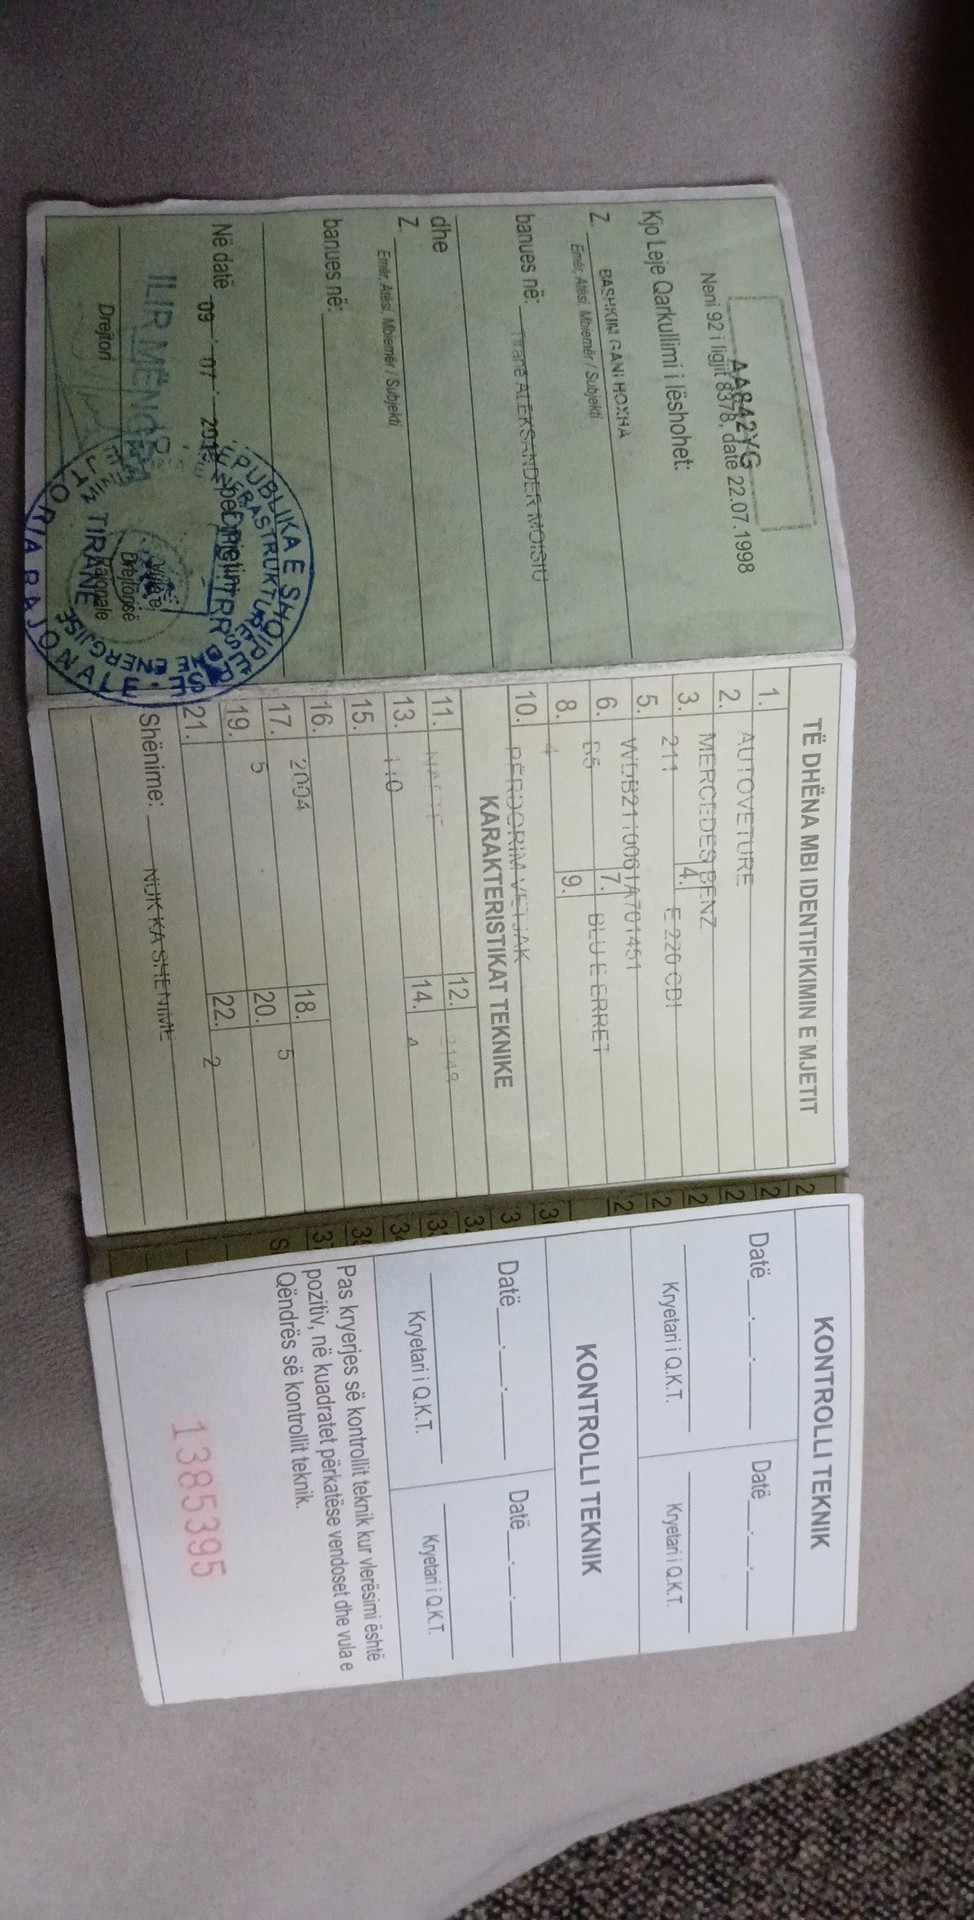 AA842YG
Neni 92 i ligjit 8378, datë 22.07.1998
Kjo Leje Qarkullimi i lëshohet:
Z. BASHKIM GANI HOXHA
Emër, Atësi, Mbiemër / Subjekti
banues në: Tiranë ALEKSANDER MOISIU
dhe
Z.
Emër, Atësi, Mbiemër / Subjekti
banues në:
Në datë 09 . 07 .
ILIR MENGRI
Drejtori
TIRANE
TË DHËNA MBI IDENTIFIKIMIN E MJETIT
1. AUTOVETURE
2. MERCEDES BENZ
3. 211 4. E 220 CDI
5. WDB2110061A701451
6. B5 7. BLU E ERRET
8. 4 9.
10. PËRDORIM VETJAK
KARAKTERISTIKAT TEKNIKE
11. NAFTE 12. 2148
13. 110 14. 4
15.
16. 2004
17. 5 18. 5
19. 20.
21. 22. 2
Shënime: NUK KA SHENIME
KONTROLLI TEKNIK
Datë . . Datë . .
Kryetari i Q.K.T. Kryetari i Q.K.T.
KONTROLLI TEKNIK
Datë . . Datë . .
Kryetari i Q.K.T. Kryetari i Q.K.T.
Pas kryerjes së kontrollit teknik kur vlerësimi është
pozitiv, në kuadratet përkatëse vendoset dhe vula e
Qëndrës së kontrollit teknik.
1385395